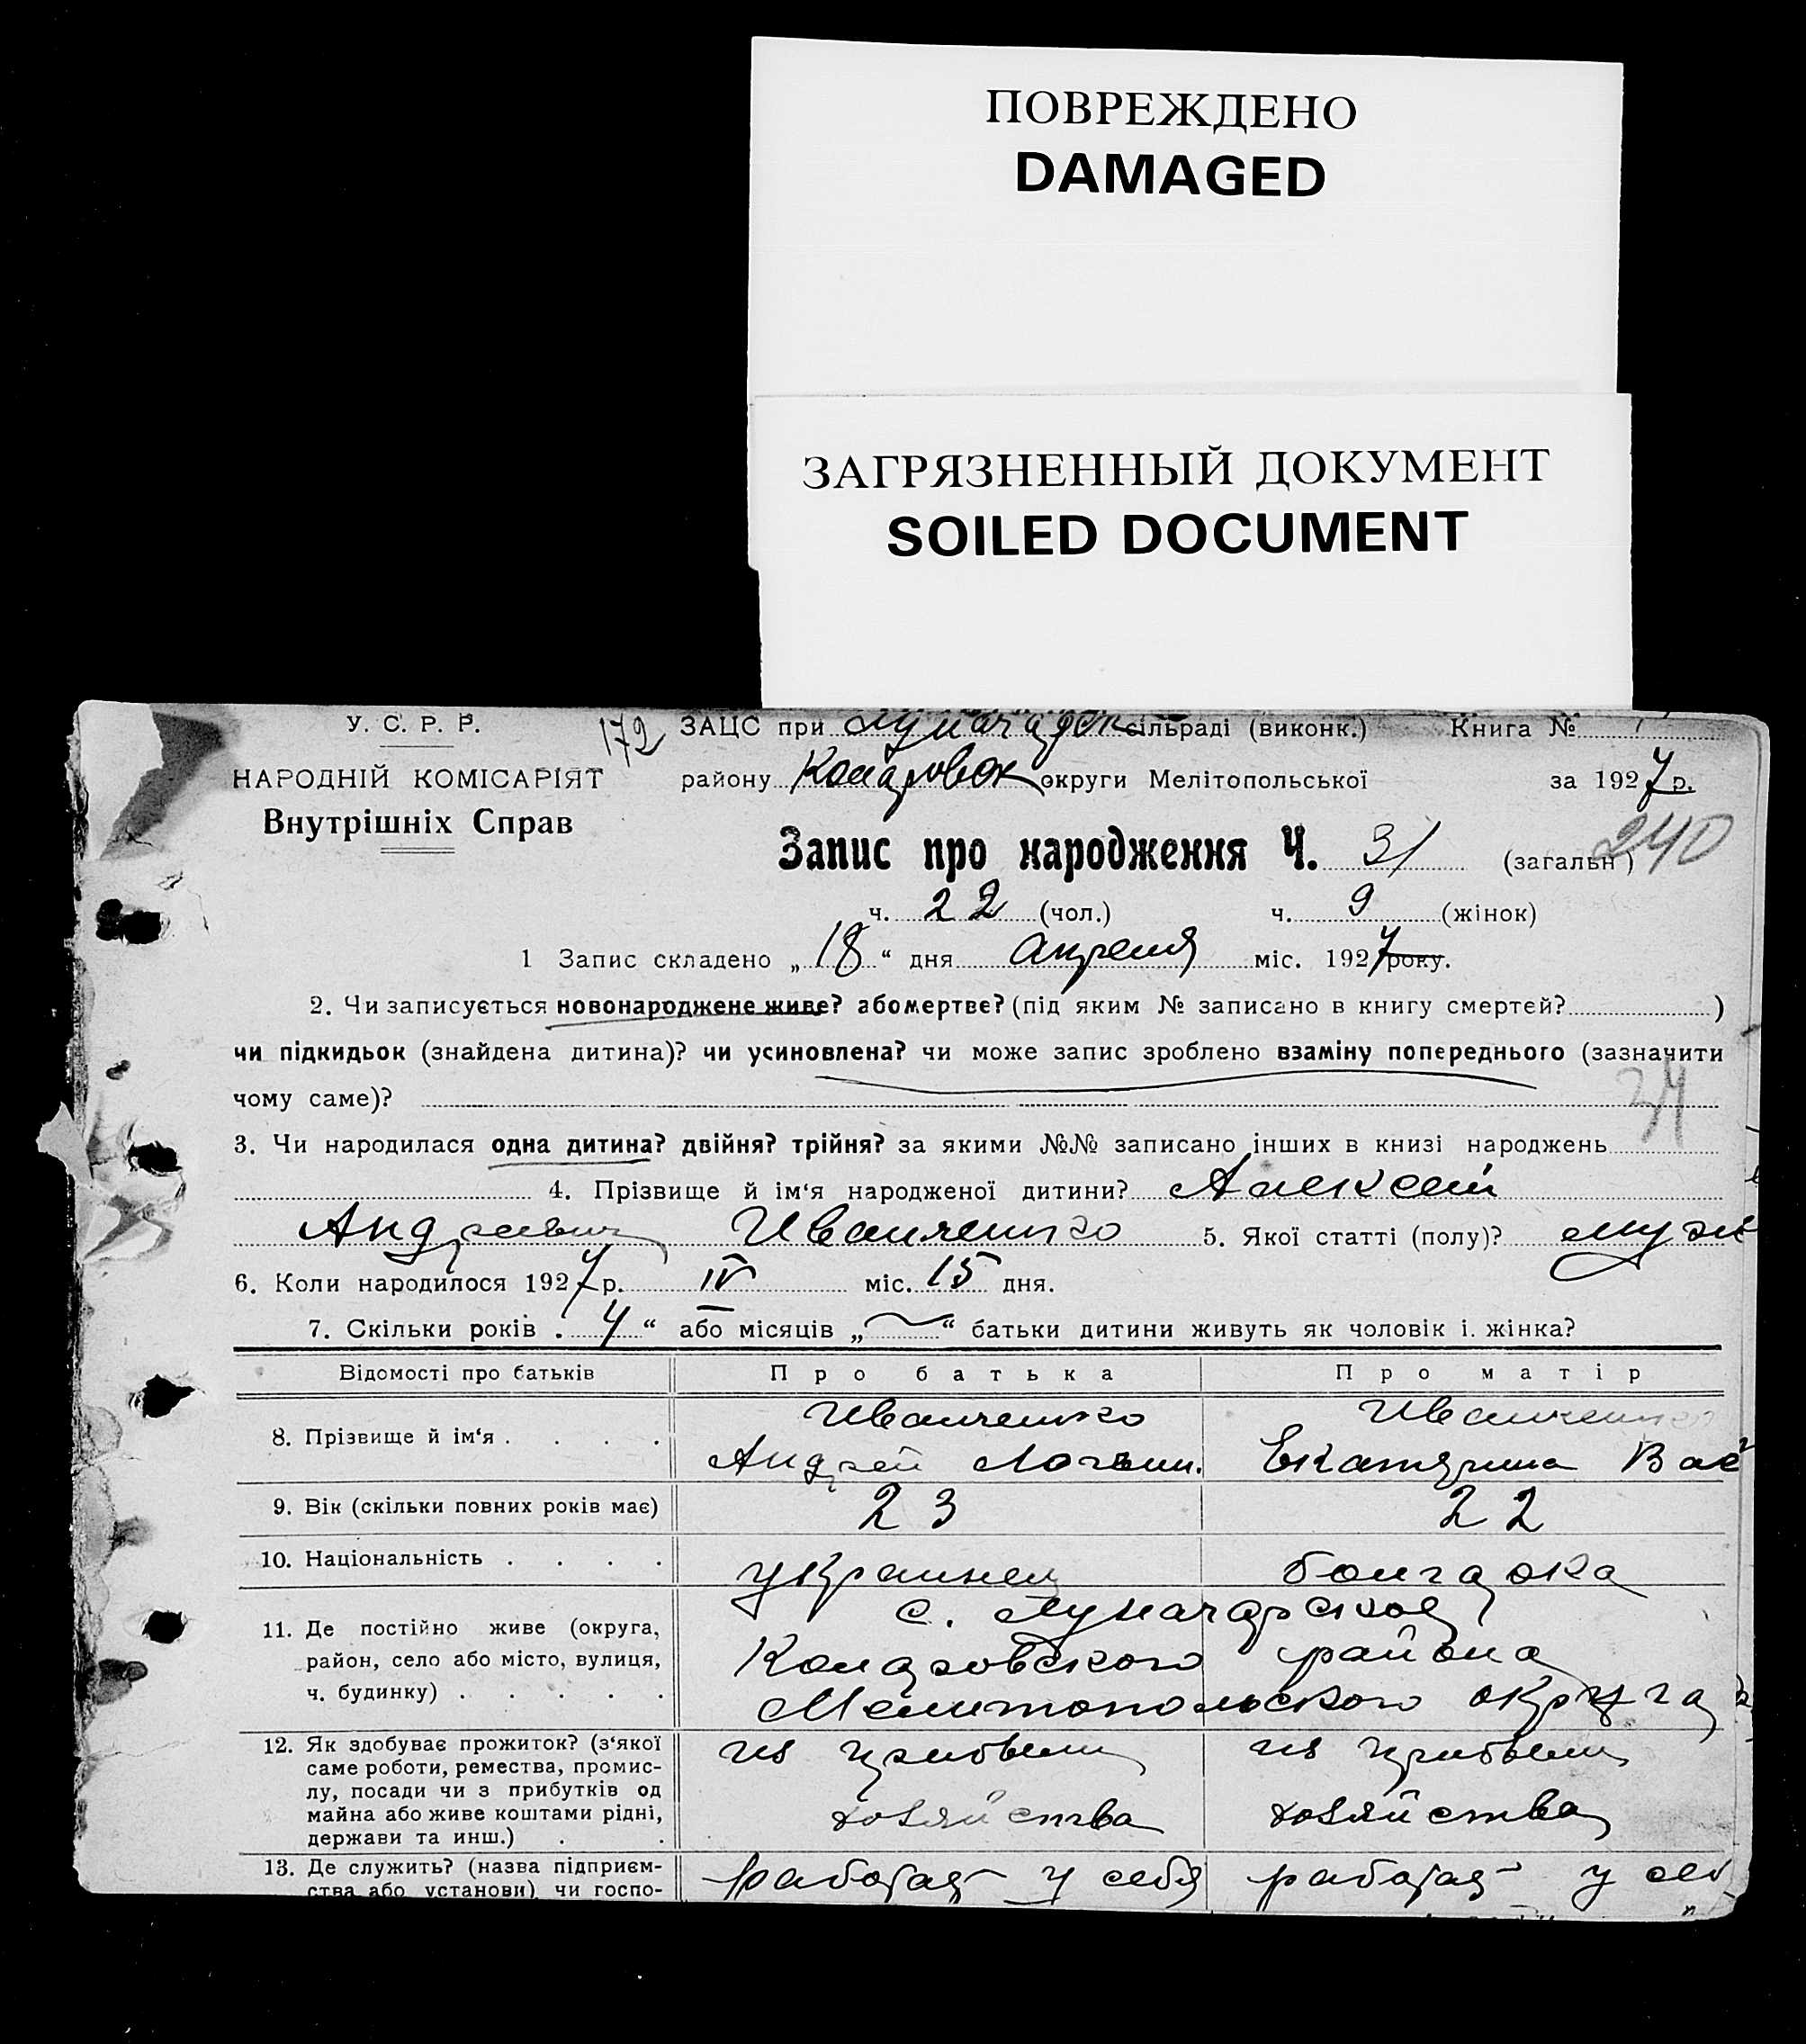 ПОВРЕЖДЕНО
DAMAGED
ЗАГРЯЗНЕННЫЙ ДОКУМЕНТ
SOILED DOCUMENT
У. С. Р. Р. 172 ЗАЦС при Луначарск сільраді (виконк.) Книга №
НАРОДНІЙ КОМІСАРІЯТ району Коларовск округи Мелітопольської за 1927 р.
Внутрішніх Справ
240
Запис про народження Ч. 31 (загальн)
ч. 22 (чол.) ч. 9 (жінок)
1 Запис складено „18“ дня апреля міс. 1927 року.
2. Чи записується новонароджене живе? або мертве? (під яким № записано в книгу смертей? )
чи підкидьок (знайдена дитина)? чи усиновлена? чи може запис зроблено взаміну попереднього (зазначити
чому саме)?
34
3. Чи народилася одна дитина? двійня? трійня? за якими №№ записано інших в книзі народжень
4. Прізвище й ім‘я народженої дитини? Алексей
Андреевич Иванченко 5. Якої статті (полу)? муж
6. Коли народилося 1927 р. IV міс. 15 дня.
7. Скільки років „4“ або місяців „ “ батьки дитини живуть як чоловік і жінка?
Відомості про батьків Про батька Про матір
Иванченко Иванченко
8. Прізвище й ім‘я . . . . Андрей Логвин. Екатерина Вас
9. Вік (скільки повних років має) 23 22
10. Національність . . . . украинец болгарка
с. Луначарское
11. Де постійно живе (округа,
район, село або місто, вулиця, Коларовского района
ч. будинку) . . . . . Мелитопольского округа
12. Як здобуває прожиток? (з‘якої из прибыли из прибыли
саме роботи, ремества, промис-
лу, посади чи з прибутків од
майна або живе коштами рідні, хозяйства хозяйства
держави та инш.) . .
13. Де служить? (назва підприєм- работая у себя работая у себ
ства або установи) чи госпо-